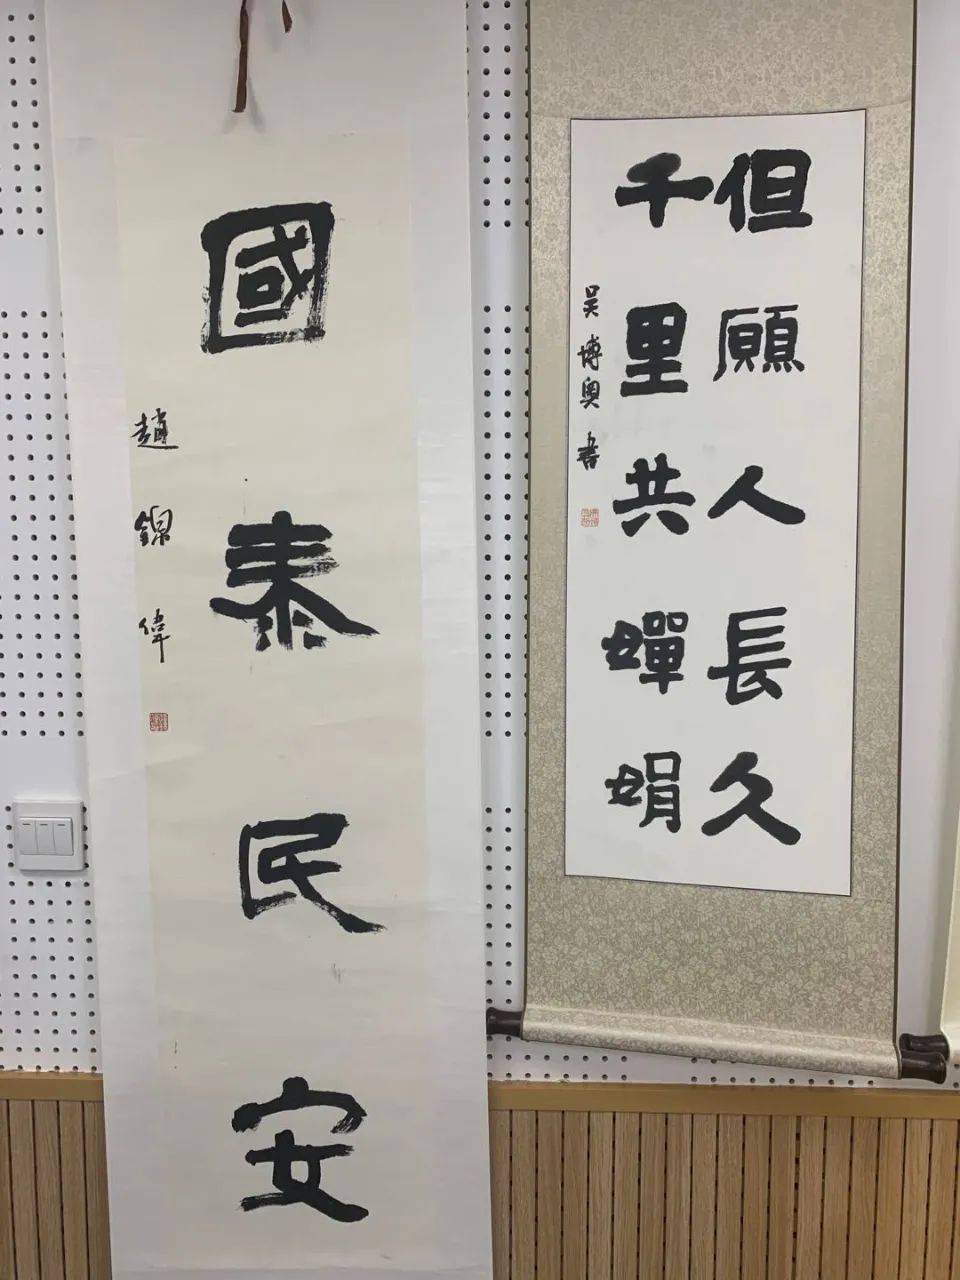 但願人長久
千里共嬋娟
吴博奥書
國泰民安
趙錦偉